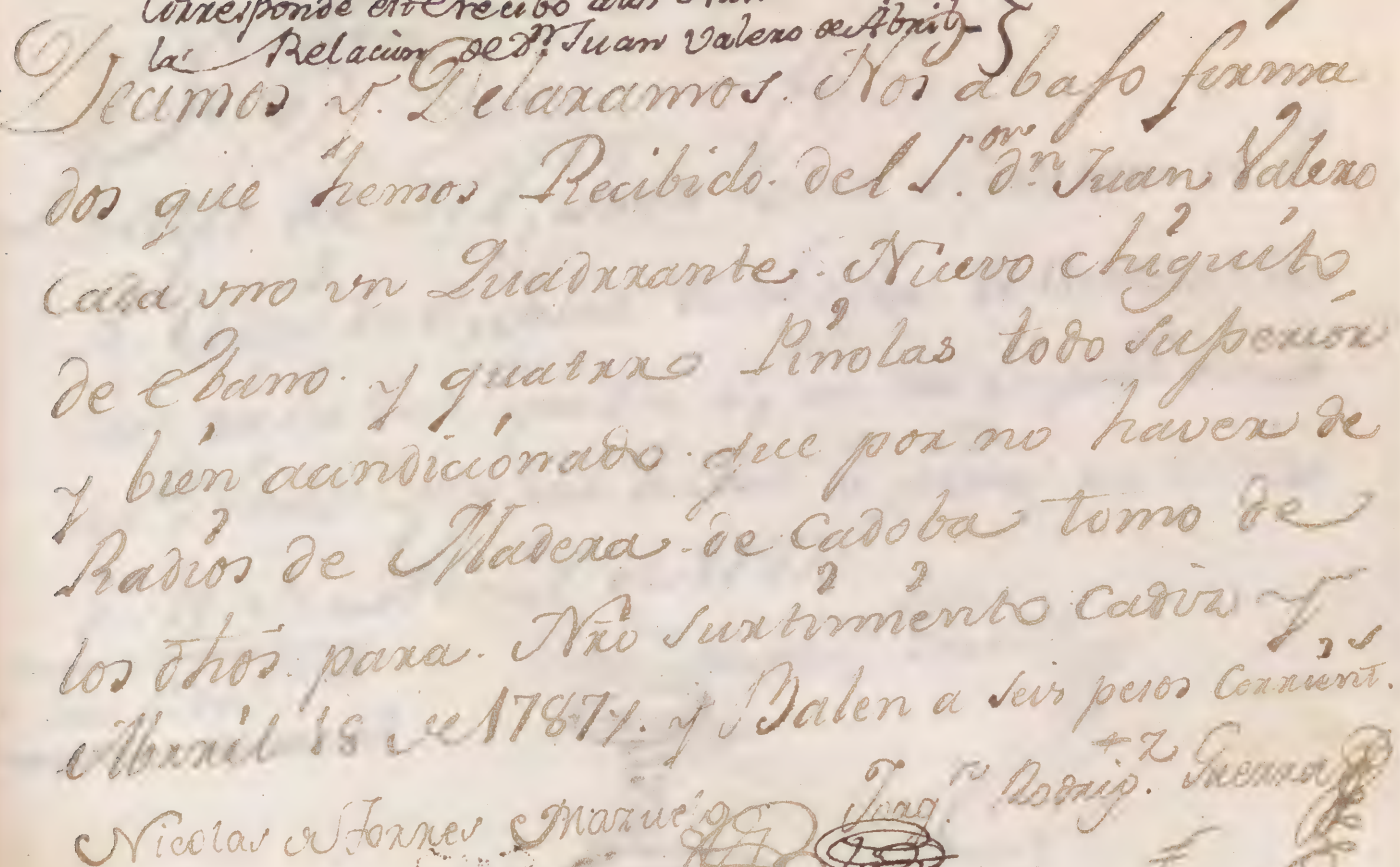 Corresponde este recibo
la Relacion de Dn Juan Valero de Abril
Decimos y Delaramos. Nos abajo firma
dos que hemos Recibido del Sor dn Juan Valero
Cada vno vn Quadrrante. Nuevo chiquito
de Ebano y quatrro Piñolas todo superior
y bien acundicionado que por no haver de
Radios de Madera de Cadoba tomo de
los dhos para Nro surtimiento Cadiz y
Abrril 18 de 1787 y Balen a seis pesos Corrientes.
Joaqn Rodrigz Guerra
Nicolas de Torres